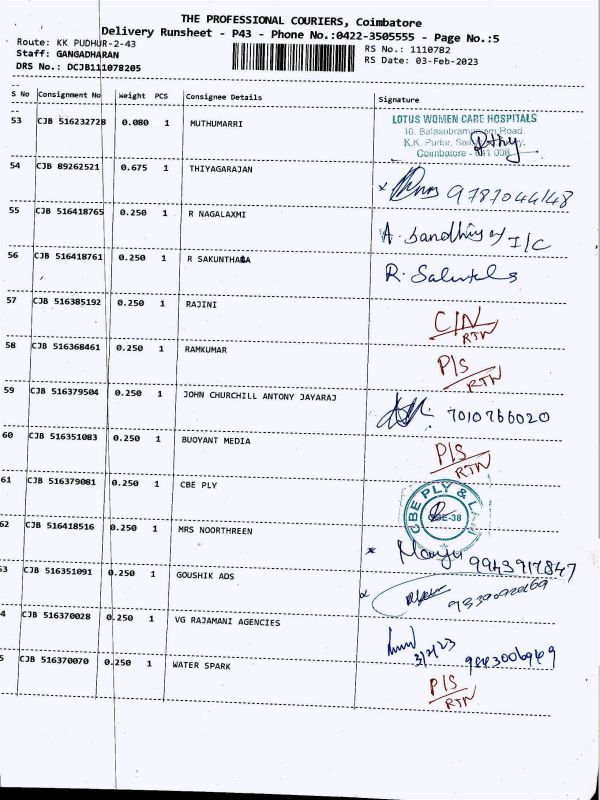 THE PROFESSIONAL COURIERS, Coimbatore
Delivery Runsheet - P43 - Phone No.:0422-3505555 - Page No.:5
Route: KK PUDHUR-2-43
RS No.: 1110782
Staff: GANGADHARAN
RS Date: 03-Feb-2023
DRS No.: DCJB111078205
S No Consignment No Weight PCS Consignee Details Signature
53 CJB 516232728 0.080 1 MUTHUMARRI
LOTUS WOMEN CARE HOSPITALS
10, Balasubramaniam Road
K.K. Pudur,
Coimbatore - 641 038
54 CJB 89262521 0.675 1 THIYAGARAJAN x 9787044148
55 CJB 516418765 0.250 1 R NAGALAXMI A. Sandhiya I/C
56 CJB 516418761 0.250 1 R SAKUNTHALA R.
57 CJB 516385192 0.250 1 RAJINI C/N
RTN
58 CJB 516368461 0.250 1 RAMKUMAR P/S
RTN
59 CJB 516379504 0.250 1 JOHN CHURCHILL ANTONY JAYARAJ 7010766020
60 CJB 516351083 0.250 1 BUOYANT MEDIA P/S
RTN
61 CJB 516379081 0.250 1 CBE PLY
CBE PLY &
CBE-38
62 CJB 516418516 0.250 1 MRS NOORTHREEN x Manju 9943917847
3 CJB 516351091 0.250 1 GOUSHIK ADS
4 CJB 516370028 0.250 1 VG RAJAMANI AGENCIES
3/2/23
5 CJB 516370070 0.250 1 WATER SPARK P/S
RTN